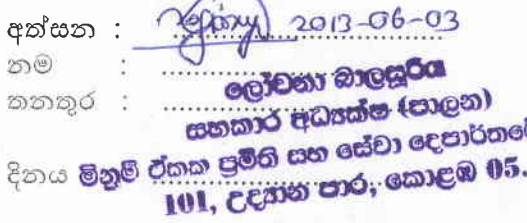 අත්සන : 2013-06-03
නම :
තනතුර :
ලෝචනා බාලසූරිය
සහකාර අධ්‍යක්ෂ (පාලන)
දිනය මිනුම් ඒකක ප්‍රමිති සහ සේවා දෙපාර්තමේ
101, උද්‍යාන පාර, කොළඹ 05.